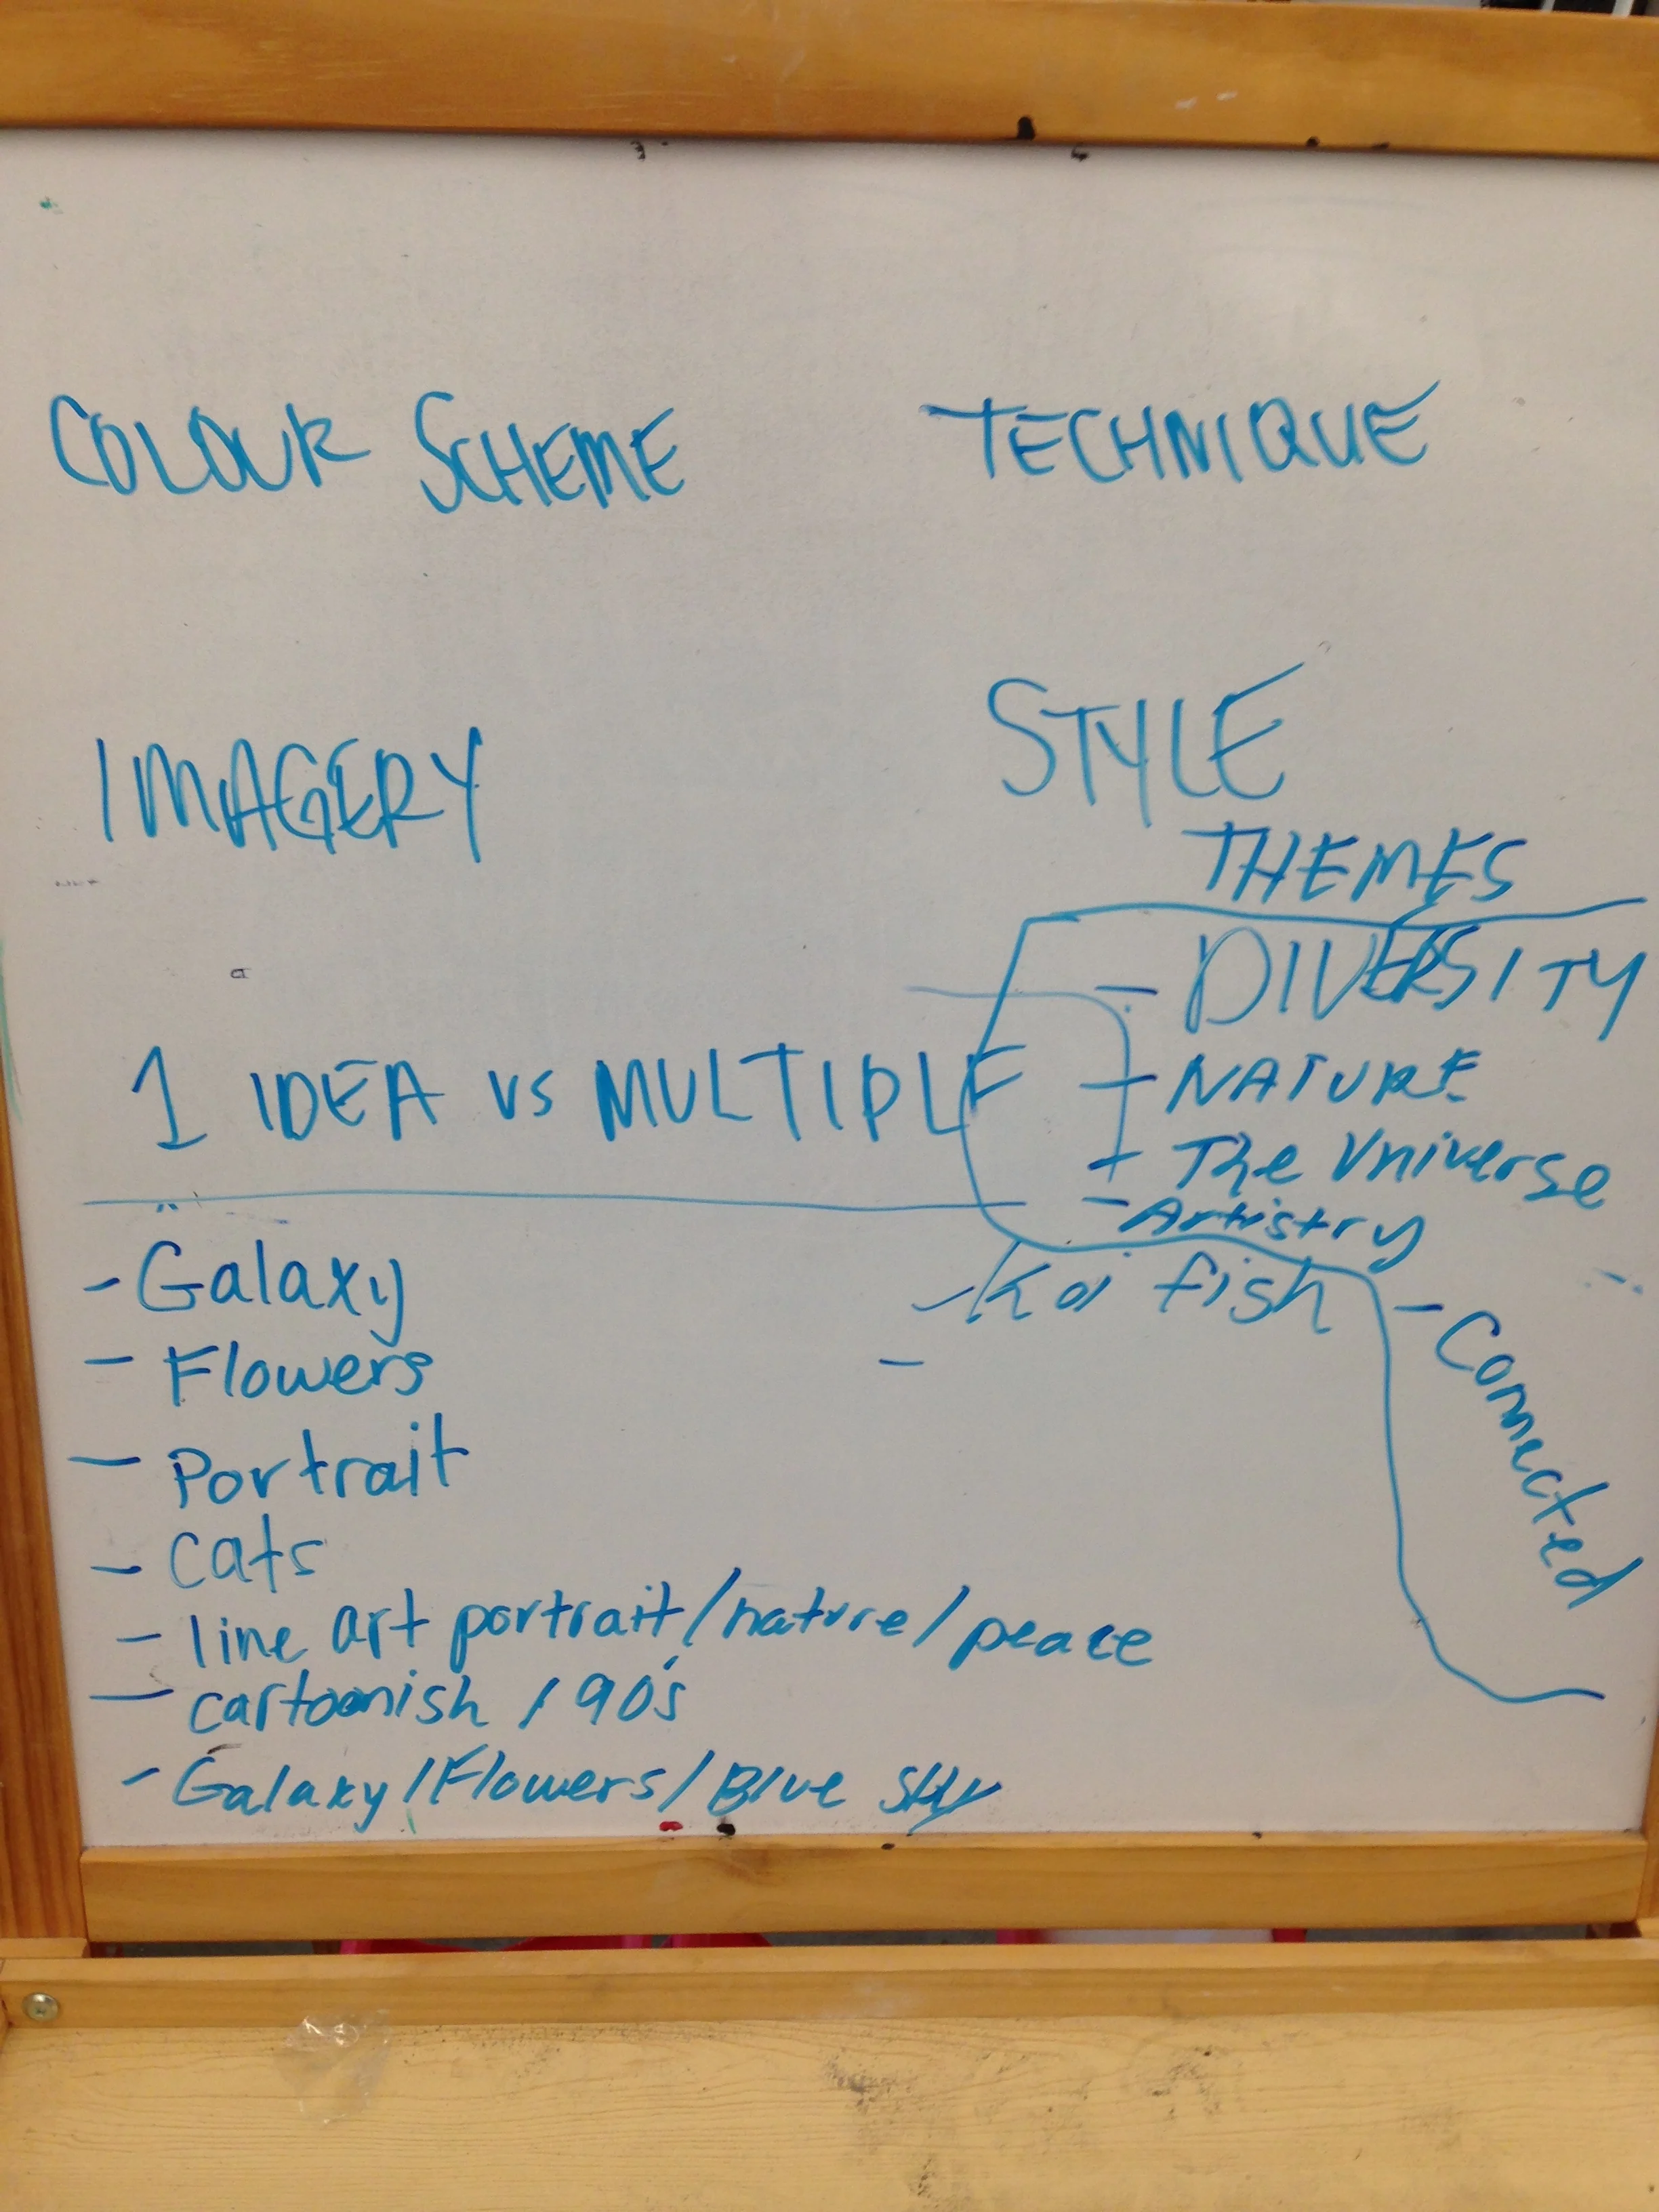 COLOUR SCHEME
TECHNIQUE
IMAGERY
STYLE
THEMES
- DIVERSITY
- NATURE
- The Universe
- Artistry
- Connected
1 IDEA VS MULTIPLE
- Galaxy
- Flowers
- Portrait
- Cats
- line art portrait/nature/peace
- cartoonish / 90's
- Galaxy/Flowers/Blue sky
- Koi fish
-